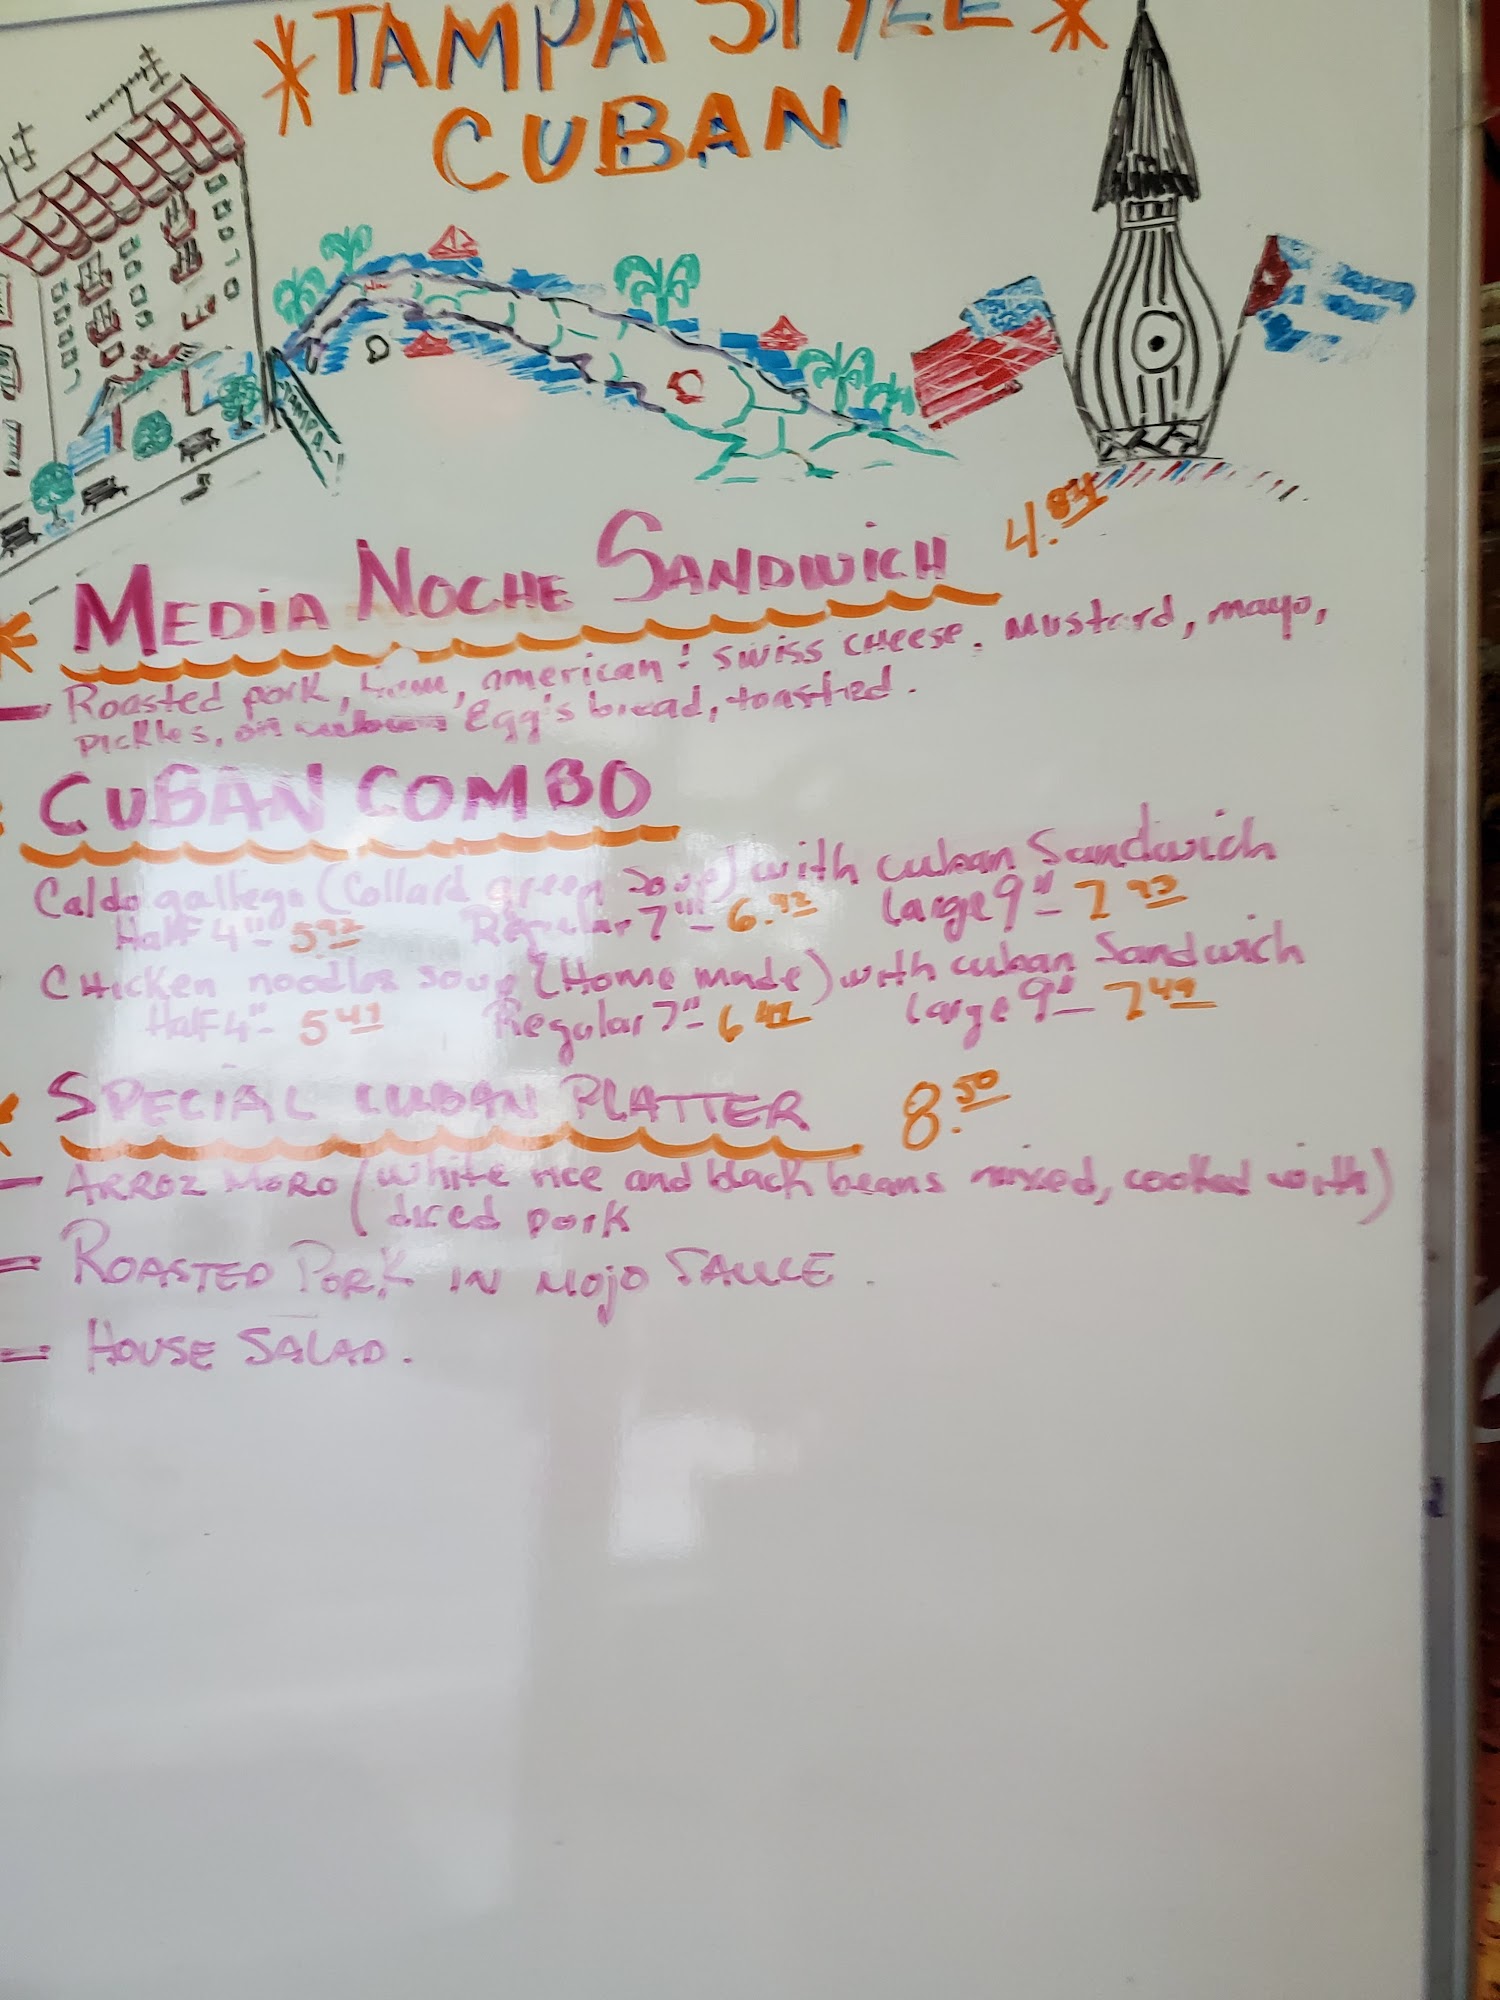 *TAMPA STYLE*
CUBAN
TAMPA
MEDIA NOCHE SANDWICH 4.84
Roasted pork, ham, american & swiss cheese. mustard, mayo,
pickles, on Egg's bread, toasted.
CUBAN COMBO
Caldo gallego (Collard green Soup) with cuban Sandwich
Half 4"- 5.92 Regular 7"- 6.92 Large 9"-
Chicken noodles soup (Home made) with cuban Sandwich
Half 4"- 5 49 Regular 7"- 6 49 Large 9"- 7 49
SPECIAL CUBAN PLATTER 8.50
- ARROZ MORO (white rice and black beans mixed, cooked with)
diced pork
= ROASTED PORK IN MOJO SAUCE.
= HOUSE SALAD.